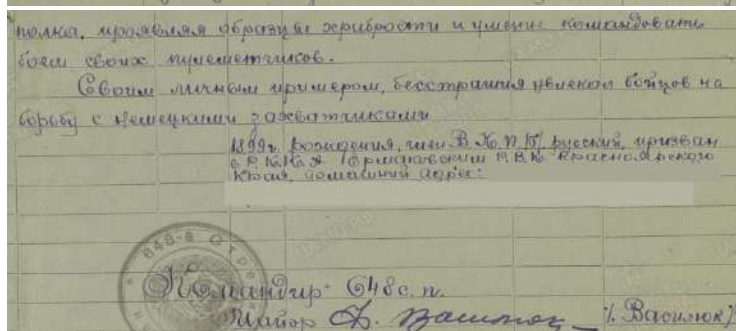 полка, проявляя образцы храбрости и умение командовать
боем своих пулеметчиков.
Своим личным примером, бесстрашия увлекал бойцов на
борьбу с немецкими захватчиками
1899г. рождения, член В.К.П.(б) русский, призван
в Р.К.К.А Ермаковским Р.В.К. Красноярского
Края, домашний адрес:
648-й Стре
Командир 648 с.п.
Майор Василюк /. Василюк/